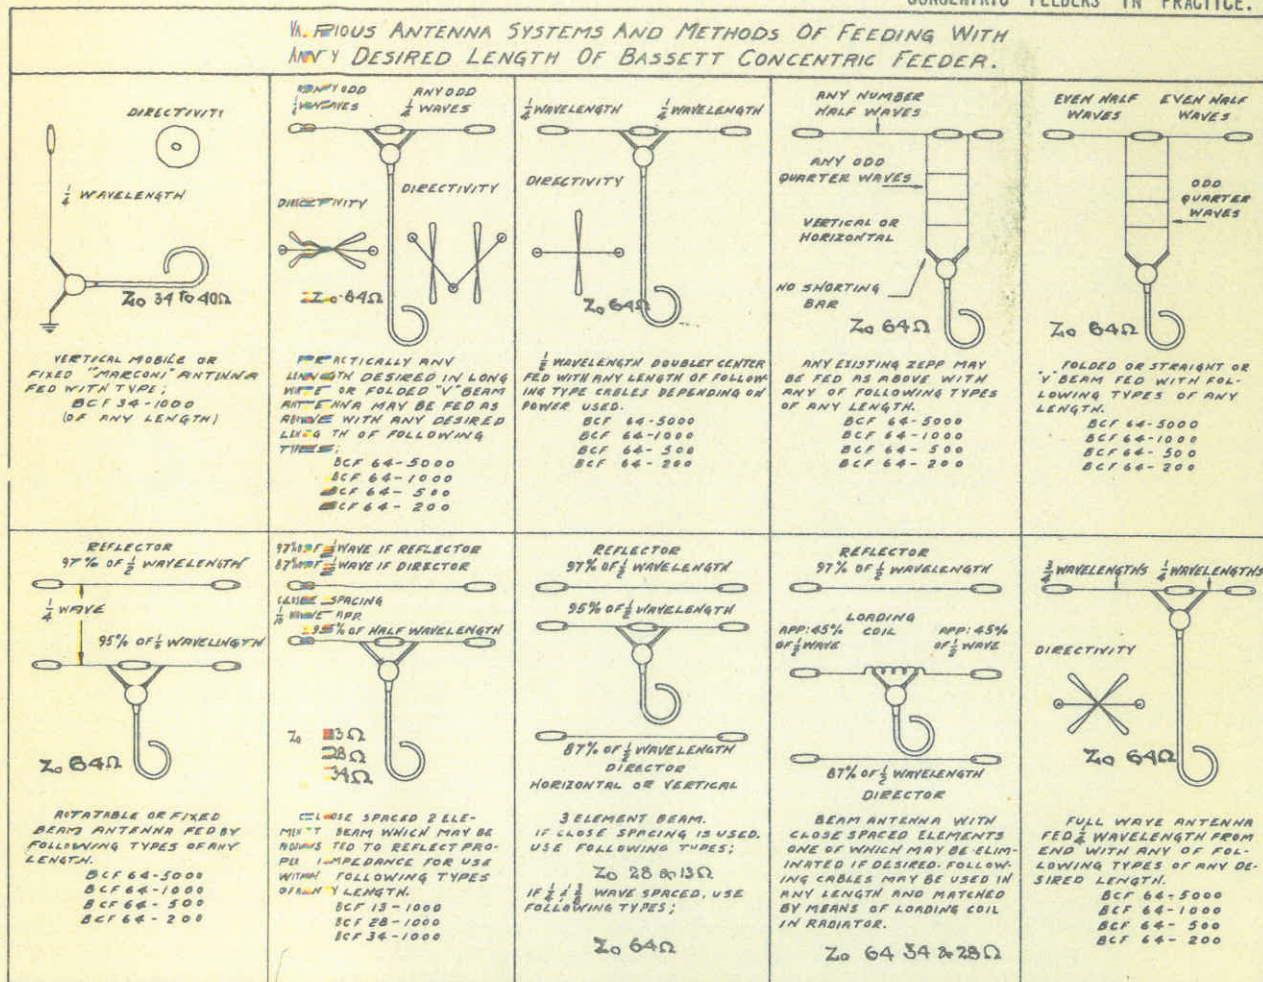 CONCENTRIC FEEDERS IN PRACTICE.
VARIOUS ANTENNA SYSTEMS AND METHODS OF FEEDING WITH
ANY DESIRED LENGTH OF BASSETT CONCENTRIC FEEDER.
DIRECTIVITY
1/4 WAVELENGTH
Zo 34 TO 40Ω
VERTICAL MOBILE OR
FIXED "MARCONI" ANTENNA
FED WITH TYPE;
BCF 34-1000
(OF ANY LENGTH)
ANY ODD
1/4 WAVES
ANY ODD
1/4 WAVES
DIRECTIVITY
DIRECTIVITY
Zo 64Ω
PRACTICALLY ANY
LENGTH DESIRED IN LONG
WIRE OR FOLDED "V" BEAM
ANTENNA MAY BE FED AS
ABOVE WITH ANY DESIRED
LENGTH OF FOLLOWING
TYPES;
BCF 64-5000
BCF 64-1000
BCF 64-500
BCF 64-200
1/4 WAVELENGTH
1/4 WAVELENGTH
DIRECTIVITY
Zo 64Ω
1/2 WAVELENGTH DOUBLET CENTER
FED WITH ANY LENGTH OF FOLLOW-
ING TYPE CABLES DEPENDING ON
POWER USED.
BCF 64-5000
BCF 64-1000
BCF 64-500
BCF 64-200
ANY NUMBER
HALF WAVES
ANY ODD
QUARTER WAVES
VERTICAL OR
HORIZONTAL
NO SHORTING
BAR
Zo 64Ω
ANY EXISTING ZEPP MAY
BE FED AS ABOVE WITH
ANY OF FOLLOWING TYPES
OF ANY LENGTH.
BCF 64-5000
BCF 64-1000
BCF 64-500
BCF 64-200
EVEN HALF
WAVES
EVEN HALF
WAVES
ODD
QUARTER
WAVES
Zo 64Ω
FOLDED OR STRAIGHT OR
"V" BEAM FED WITH FOL-
LOWING TYPES OF ANY
LENGTH.
BCF 64-5000
BCF 64-1000
BCF 64-500
BCF 64-200
REFLECTOR
97% OF 1/2 WAVELENGTH
1/4 WAVE
95% OF 1/2 WAVELENGTH
Zo 64Ω
ROTATABLE OR FIXED
BEAM ANTENNA FED BY
FOLLOWING TYPES OF ANY
LENGTH.
BCF 64-5000
BCF 64-1000
BCF 64-500
BCF 64-200
97% OF 1/2 WAVE IF REFLECTOR
87% OF 1/2 WAVE IF DIRECTOR
CLOSE SPACING
1/10 WAVE APP.
95% OF HALF WAVELENGTH
Zo 13Ω
28Ω
34Ω
CLOSE SPACED 2 ELE-
MENT BEAM WHICH MAY BE
ADJUSTED TO REFLECT PRO-
PER IMPEDANCE FOR USE
WITH FOLLOWING TYPES
OF ANY LENGTH.
BCF 13-1000
BCF 28-1000
BCF 34-1000
REFLECTOR
97% OF 1/2 WAVELENGTH
95% OF 1/2 WAVELENGTH
87% OF 1/2 WAVELENGTH
DIRECTOR
HORIZONTAL OR VERTICAL
3 ELEMENT BEAM.
IF CLOSE SPACING IS USED.
USE FOLLOWING TYPES;
Zo 28 & 13Ω
WAVE SPACED, USE
FOLLOWING TYPES;
Zo 64Ω
REFLECTOR
97% OF 1/2 WAVELENGTH
LOADING
COIL
APP: 45%
OF 1/2 WAVE
APP: 45%
OF 1/2 WAVE
87% OF 1/2 WAVELENGTH
DIRECTOR
BEAM ANTENNA WITH
CLOSE SPACED ELEMENTS
ONE OF WHICH MAY BE ELIM-
INATED IF DESIRED. FOLLOW-
ING CABLES MAY BE USED IN
ANY LENGTH AND MATCHED
BY MEANS OF LOADING COIL
IN RADIATOR.
Zo 64 34 & 28Ω
3/4 WAVELENGTHS
1/4 WAVELENGTHS
DIRECTIVITY
Zo 64Ω
FULL WAVE ANTENNA
FED 1/4 WAVELENGTH FROM
END WITH ANY OF FOL-
LOWING TYPES OF ANY DE-
SIRED LENGTH.
BCF 64-5000
BCF 64-1000
BCF 64-500
BCF 64-200